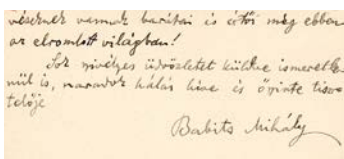 vésznek vannak barátai is értői még ebben
az elromlott világban!
Sok szivélyes üdvözletet küldve ismeretle-
nül is, maradok hálás hive és őszinte tisz-
telője
Babits Mihály